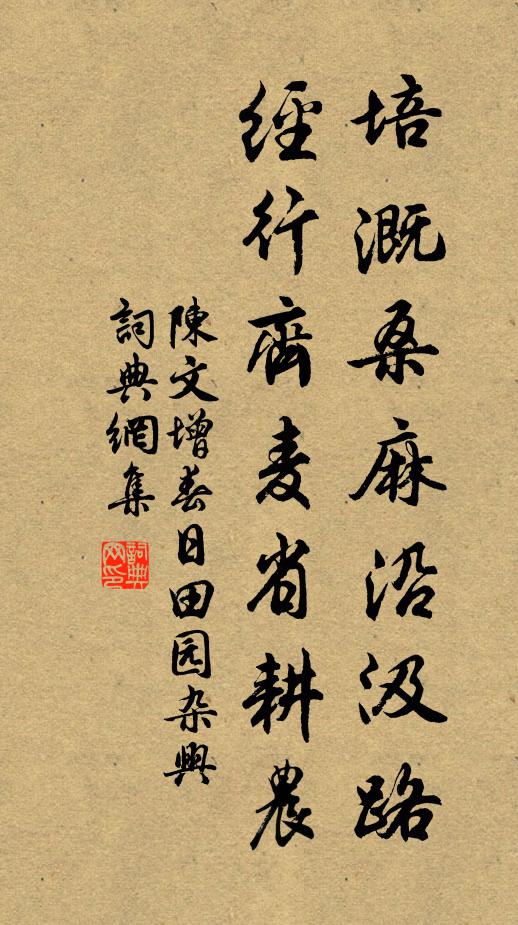 培溉桑麻沿汲路
經行齊麦省耕農
陳文增春日田园杂興
詞典網集
詞典網印